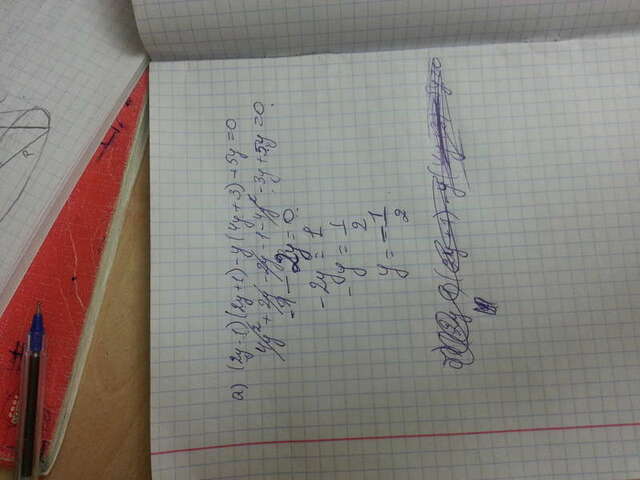 а) (2y-1)(2y+1)-y(4y+3)+5y=0
4y²+2y-2y-1-4y²-3y+5y=0
-1-2y=0
-2y=1
-y=1/2
y=-1/2